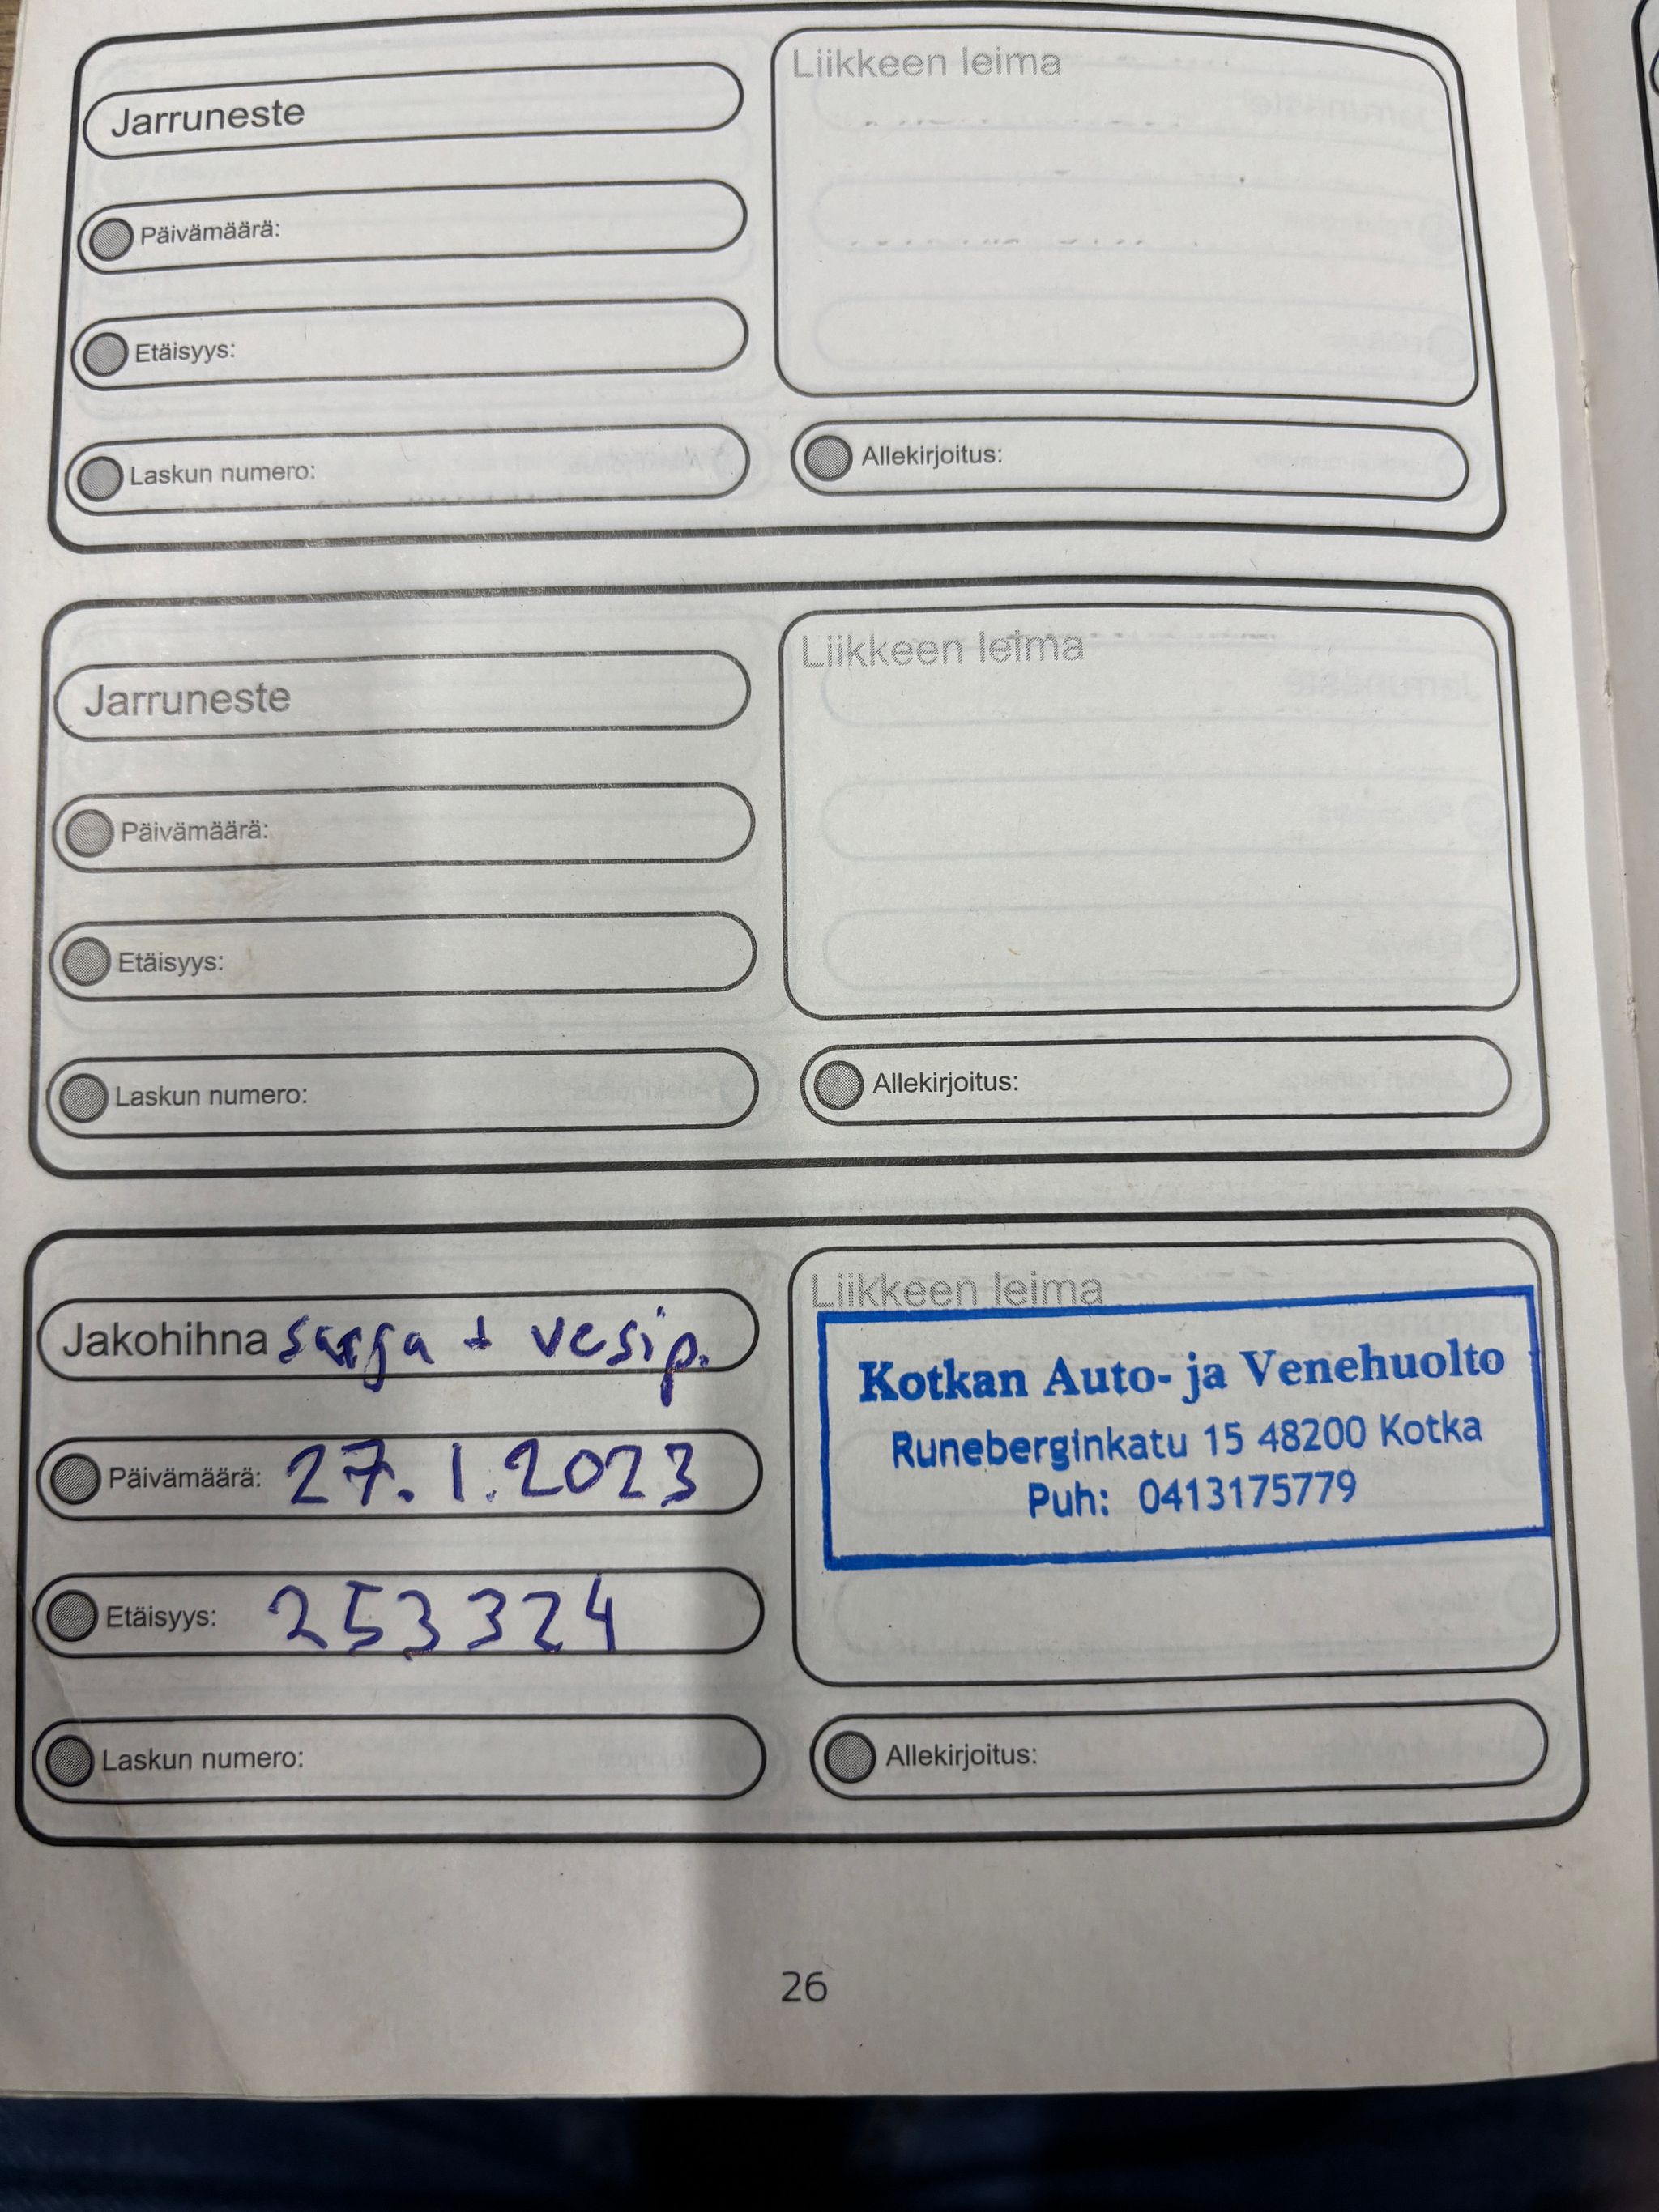 Jarruneste
Liikkeen leima
Päivämäärä:
Etäisyys:
Laskun numero:
Allekirjoitus:
Jarruneste
Liikkeen leima
Päivämäärä:
Etäisyys:
Laskun numero:
Allekirjoitus:
Jakohihna sarja + vesip.
Päivämäärä: 27.1.2023
Etäisyys: 253324
Laskun numero:
Liikkeen leima
Kotkan Auto- ja Venehuolto
Runeberginkatu 15 48200 Kotka
Puh: 0413175779
Allekirjoitus:
26